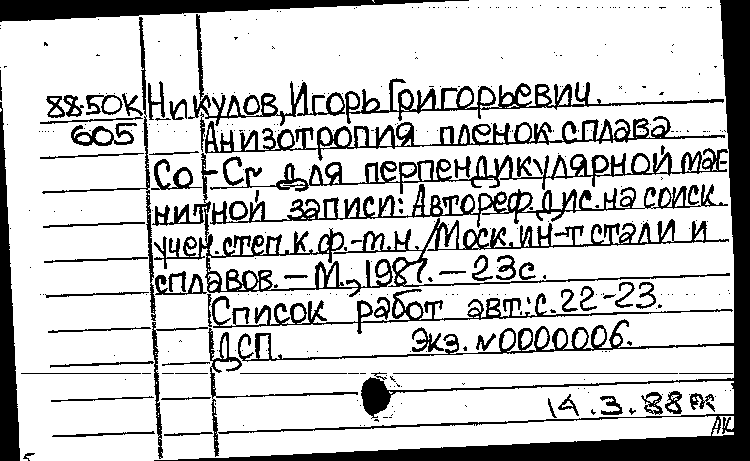 88.50К Никулов, Игорь Григорьевич.
605 Анизотропия пленок сплава
Co-Cr для перпендикулярной маг
нитной записи: Автореф. дис. на соиск.
учен. степ. к. ф.-м.н. /Моск. ин-т стали и
сплавов. — М., 1987. — 23с.
Список работ авт.: с. 22-23.
ДСП. Экз. N0000006.
14.3.88
АК